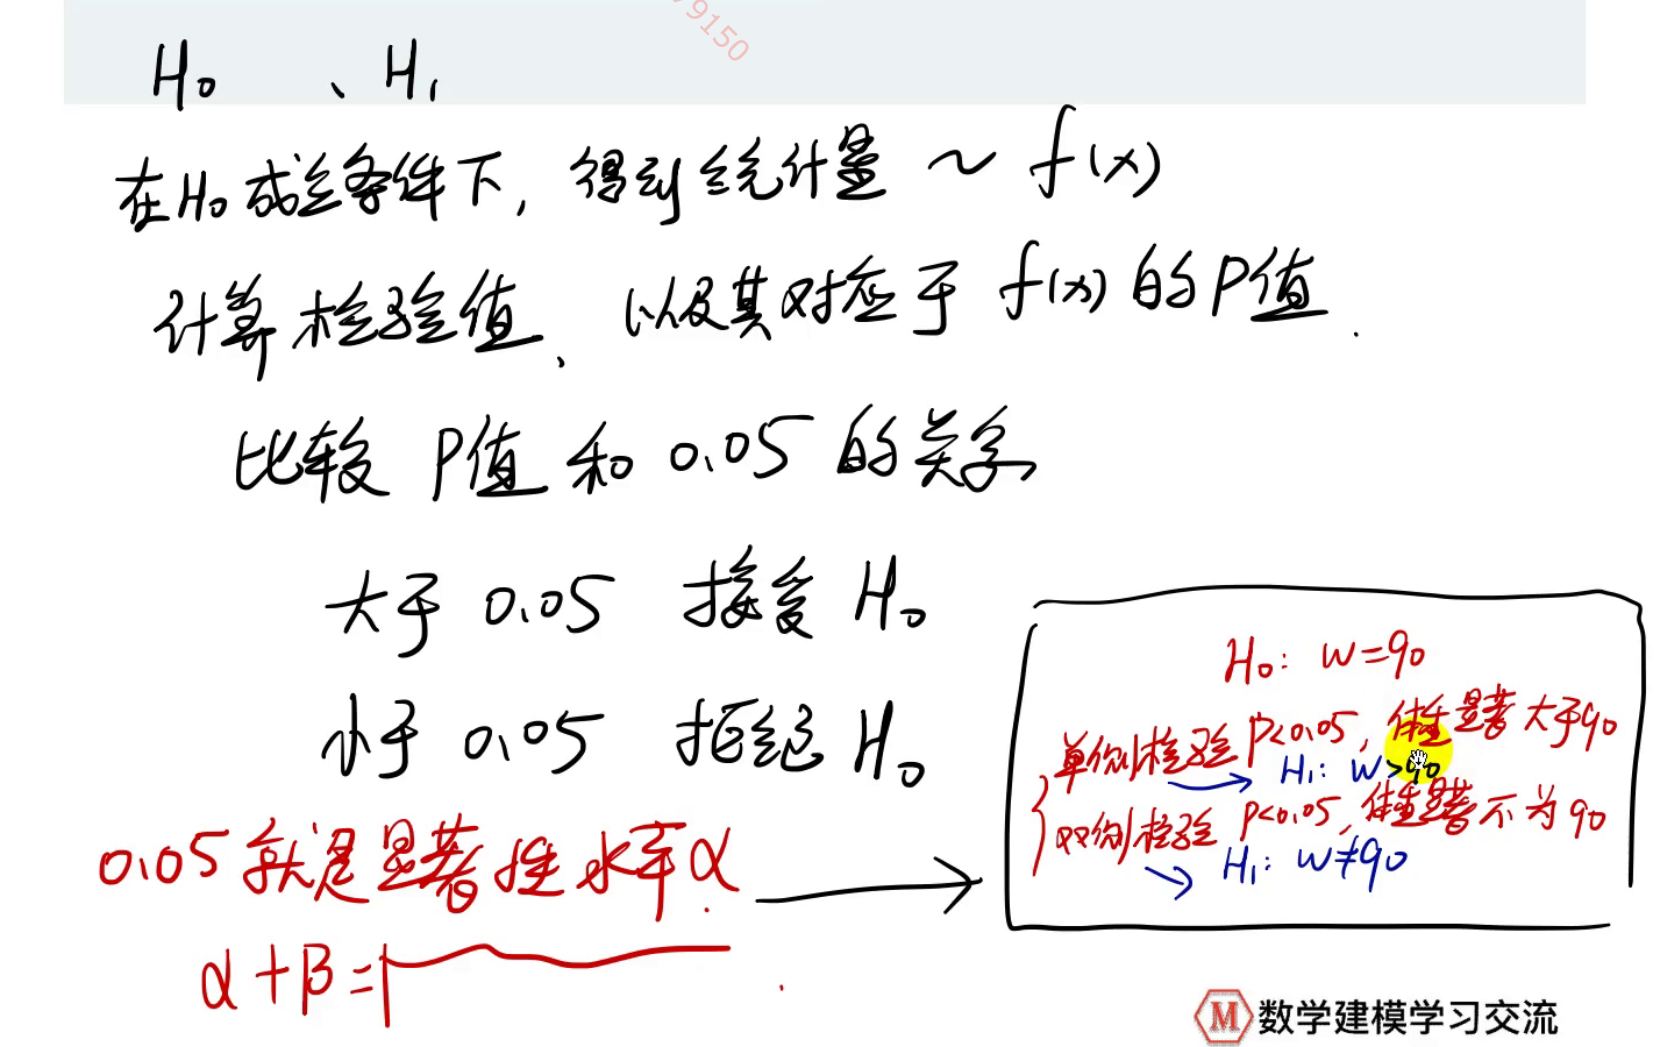 9150
H₀、H₁
在H₀成立条件下，得到统计量 ~ f(x)
计算检验值、以及其对应于 f(x) 的P值.
比较 P值 和 0.05 的关系
大于 0.05 接受 H₀
小于 0.05 拒绝 H₀
0.05就是显著性水平α.
α+β=1
H₀: W=90
单侧检验 P<0.05, 体重显著大于90
→ H₁: W>90
双侧检验 P<0.05, 体重显著不为90
→ H₁: W≠90
M 数学建模学习交流